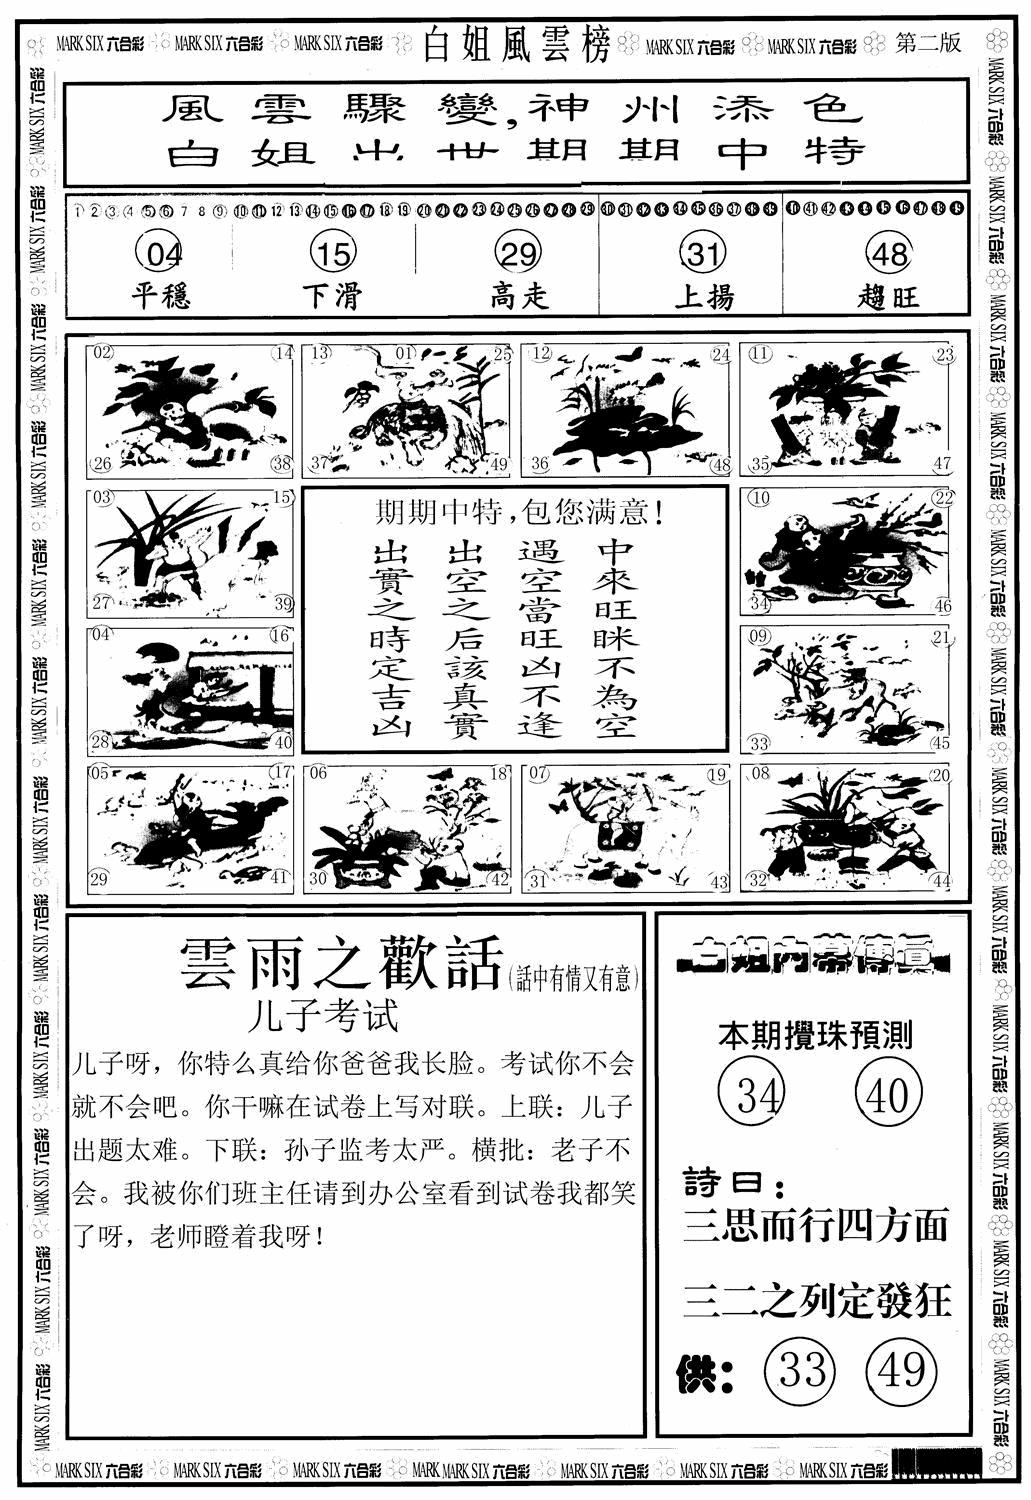 MARK SIX 六合彩 MARK SIX 六合彩 MARK SIX 六合彩 白姐風雲榜 MARK SIX 六合彩 MARK SIX 六合彩 第二版
風雲驟變,神州添色
白姐出世期期中特
1 2 3 4 5 6 7 8 9 10 11 12 13 14 15 16 17 18 19 20 21 22 23 24 25 26 27 28 29 30 31 32 33 34 35 36 37 38 39 40 41 42 43 44 45 46 47 48 49
04 15 29 31 48
平穩 下滑 高走 上揚 趨旺
02 14 13 01 25 12 24 11 23
26 38 37 49 36 48 35 47
03 15
27 39
04 16
28 40
期期中特,包您满意!
中來旺眯不為空
遇空當旺凶不逢
出空之后該真實
出實之時定吉凶
10 22
34 46
09 21
33 45
05 17 06 18 07 19 08 20
29 41 30 42 31 43 32 44
雲雨之歡話(話中有情又有意)
儿子考试
儿子呀，你特么真给你爸爸我长脸。考试你不会
就不会吧。你干嘛在试卷上写对联。上联：儿子
出题太难。下联：孙子监考太严。横批：老子不
会。我被你们班主任请到办公室看到试卷我都笑
了呀，老师瞪着我呀！
白姐内幕傳真
本期攪珠預測
34 40
詩曰：
三思而行四方面
三二之列定發狂
供：33 49
MARK SIX 六合彩 MARK SIX 六合彩 MARK SIX 六合彩 MARK MARK SIX 六合彩 MARK SIX 六合彩 MARK SIX 六合彩 MARK SIX 六合彩